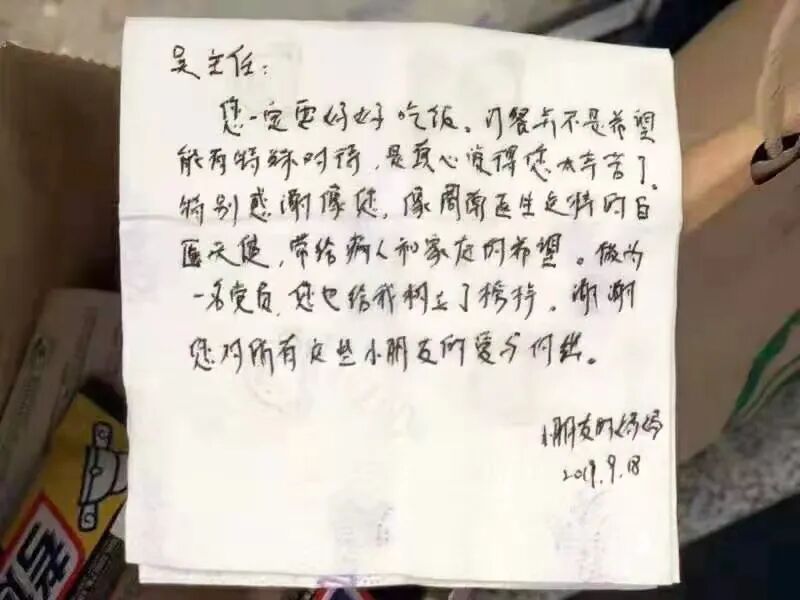 吴主任:
您一定要好好吃饭。订餐并不是希望
能有特殊对待,是真心觉得您太辛苦了。
特别感谢像您,像周南医生这样的白
医天使,带给病人和家庭的希望。做为
一名党员,您也给我树立了榜样。谢谢
您对所有这些小朋友的爱与付出。
小朋友的妈妈
2019.9.18